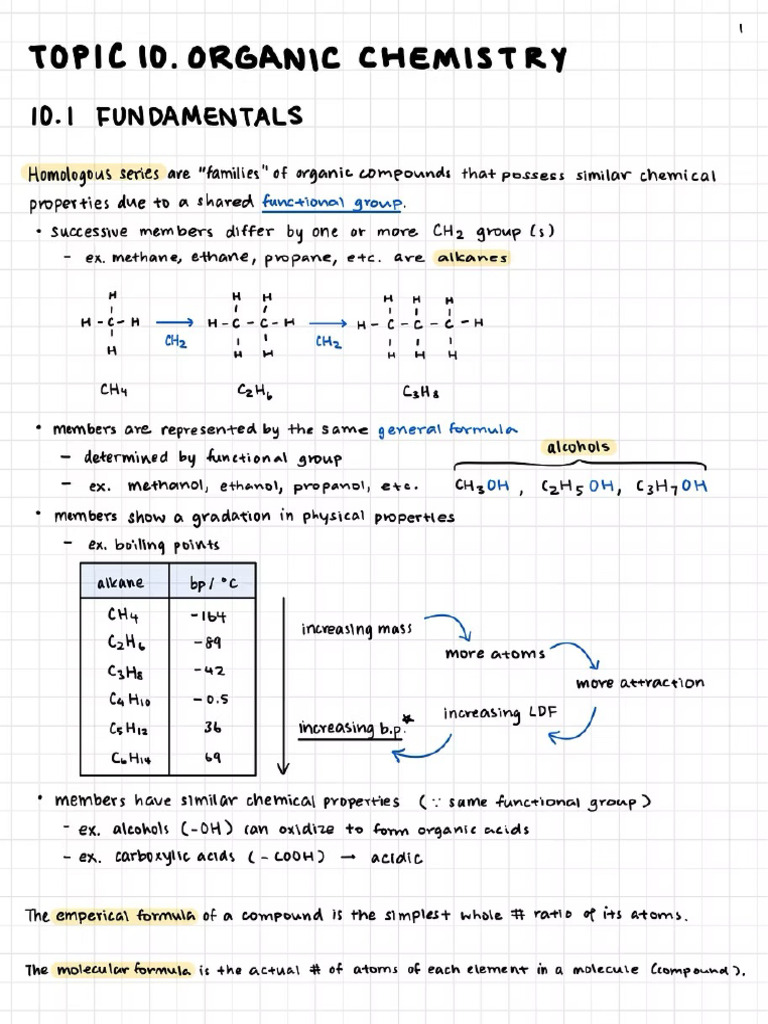 1
TOPIC 10. ORGANIC CHEMISTRY
10.1 FUNDAMENTALS
Homologous series are "families" of organic compounds that possess similar chemical
properties due to a shared functional group.
• successive members differ by one or more CH2 group (s)
- ex. methane, ethane, propane, etc. are alkanes
H H H H H H
H - C - H → H - C - C - H → H - C - C - C - H
CH2 CH2
H H H H H H
CH4 C2H6 C3H8
• members are represented by the same general formula
- determined by functional group
alcohols
- ex. methanol, ethanol, propanol, etc. CH3OH , C2H5OH, C3H7OH
• members show a gradation in physical properties
- ex. boiling points
alkane bp/°C
CH4 -164
C2H6 -89
C3H8 -42
C4H10 -0.5
C5H12 36
C6H14 69
increasing mass
more atoms
more attraction
increasing LDF
increasing b.p.*
• members have similar chemical properties (∵ same functional group)
- ex. alcohols (-OH) can oxidize to form organic acids
- ex. carboxylic acids (-COOH) → acidic
The emperical formula of a compound is the simplest whole # ratio of its atoms.
The molecular formula is the actual # of atoms of each element in a molecule (compound).